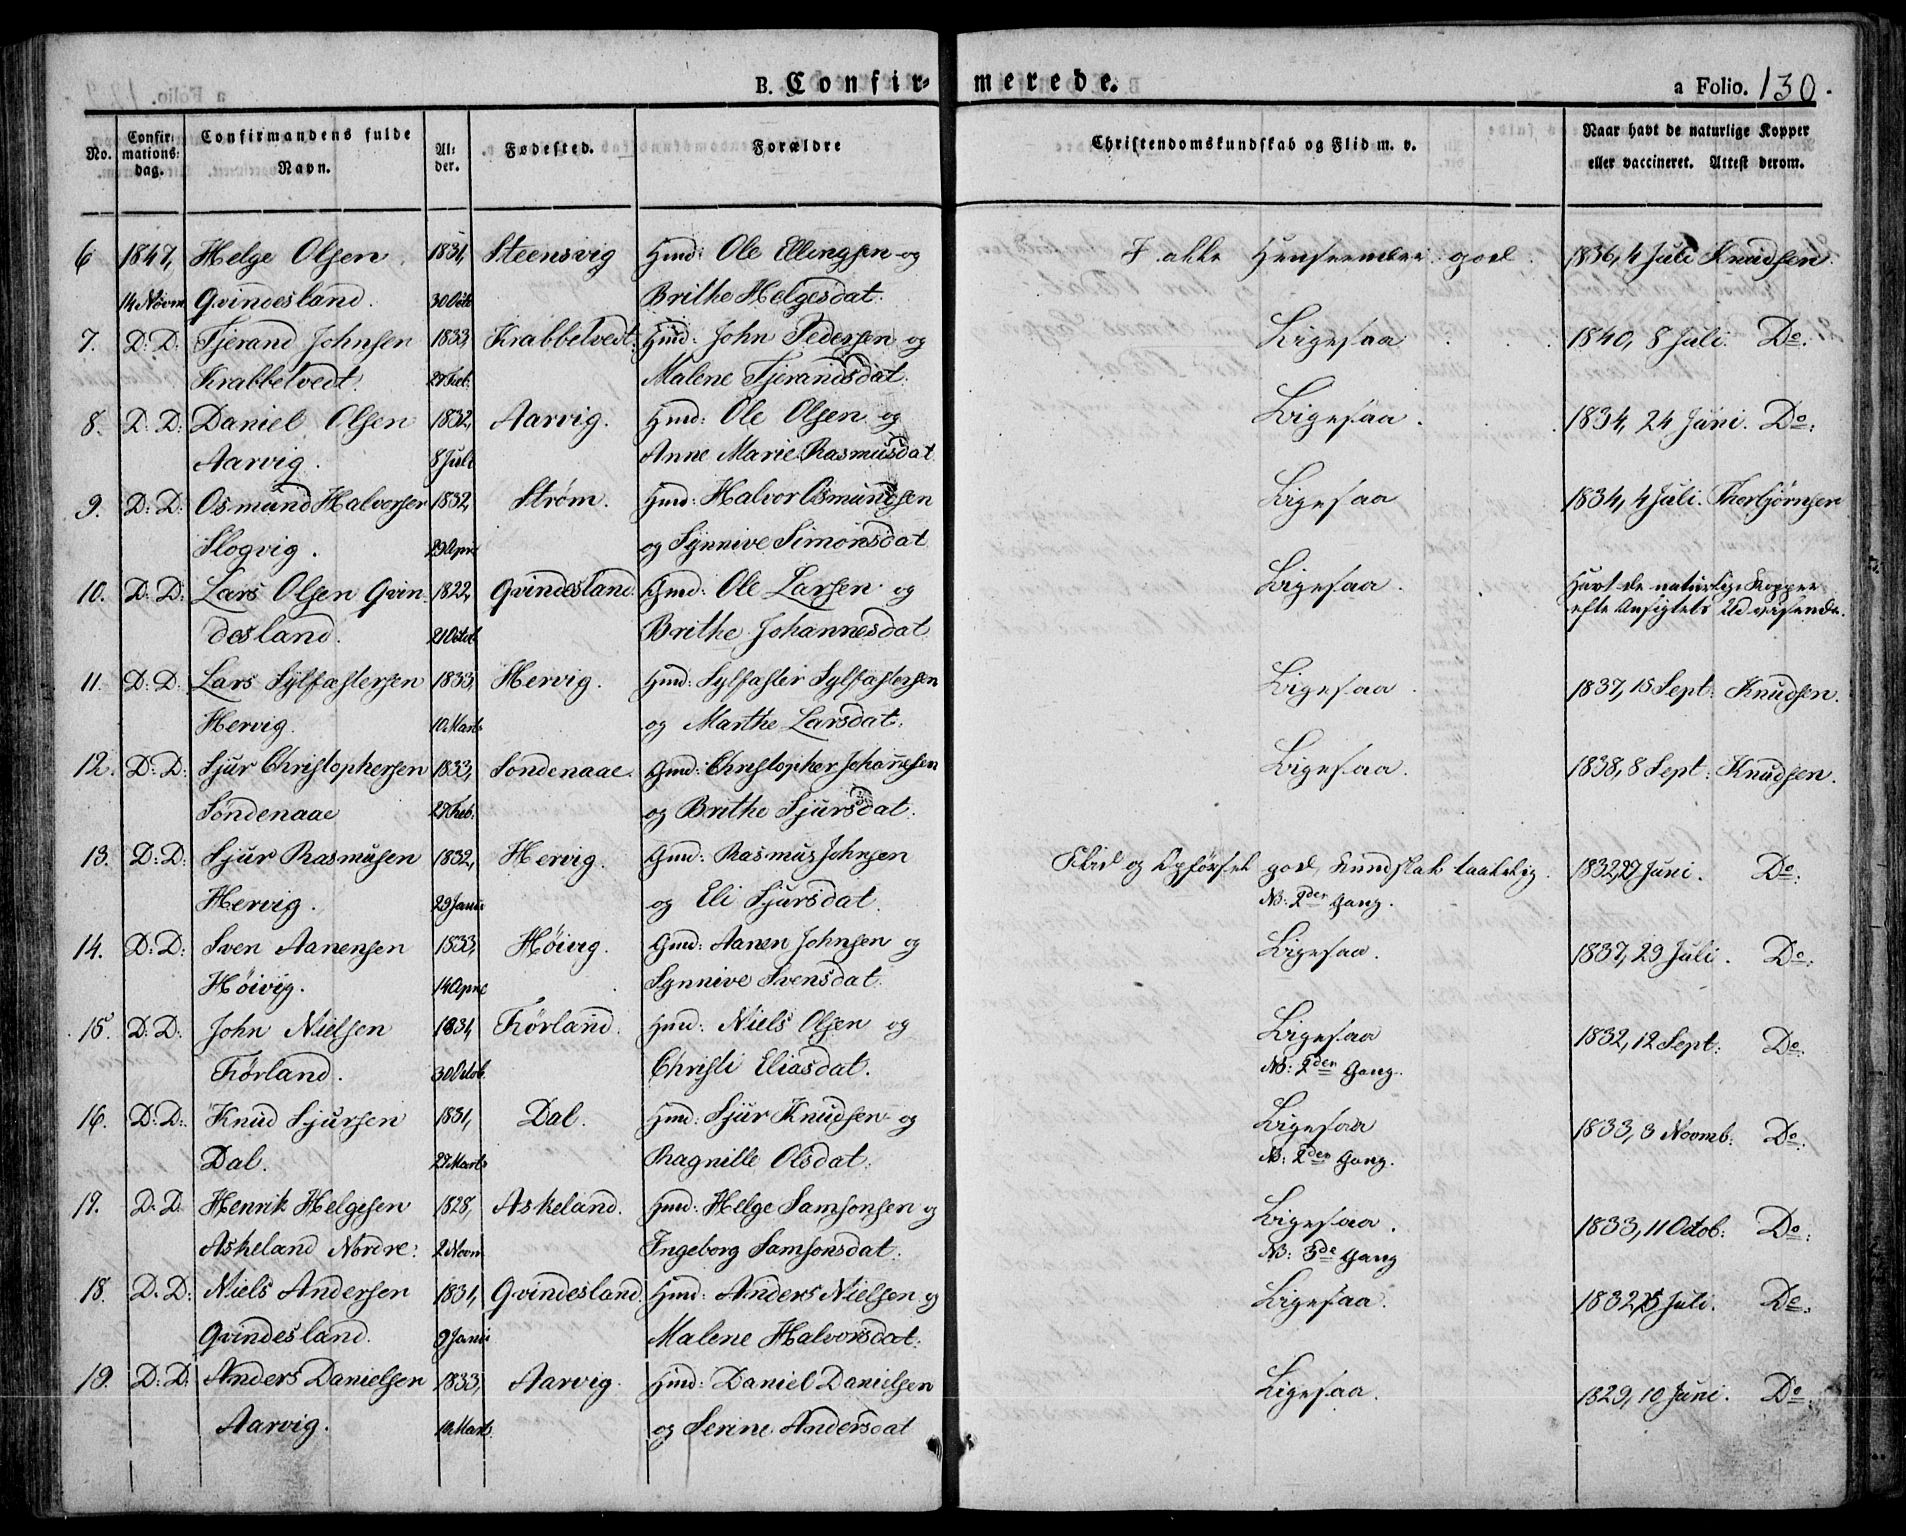 B. Confir- merede. a Folio. 130.
No. Confirmations: dag. Confirmandens fulde Navn. Al- der. Fødested. Forældre Christendomskundskab og Flid m. v. Naar havt de naturlige Kopper eller vaccineret. Attest derom.
6 1847, Helge Olsen 1831, Steensvig Gmd: Ole Ellingsen og I alle Henseender god. 1836, 4 Juli Knudsen.
14 Novm Qvindesland. 30 Octb Brithe Helgesdat.
7. D: D: Tjerand Johnsen 1833, Krabbetvedt. Gmd: John Pedersen og Ligesaa 1840, 8 Juli. Do:
Krabbetvedt. 27 Feb. Malene Tjerandsdat.
8. D: D: Daniel Olsen 1832, Aarvig. Gmd: Ole Olsen og Ligesaa. 1834, 24 Juni. Do:
Aarvig. 8 Juli Anne Marie Rasmusdat
9. D: D: Osmund Halversen 1832, Strøm. Gmd: Halvor Osmundsen Ligesaa 1834, 4 Juli. Thorbjørnsen
Slogvig. 29 Apri og Synnive Simonsdat
10. D: D: Lars Olsen Qvin- 1822, Qvindesland. Gmd: Ole Larsen og Ligesaa. Havt de naturlige Kopper
desland. 21 Octob Brithe Johannesdat efter Ansigtets Udvisende.
11. D: D: Lars Sylfæstersen 1833, Hervig. Gmd: Sylfæster Sylfæstersen Ligesaa. 1837, 15 Sept: Knudsen.
Hervig. 10 Marts og Marthe Larsdat.
12. D: D: Sjur Christophersen 1833, Søndenaae. Gmd: Christopher Johannesen Ligesaa. 1838, 8 Sept: Knudsen.
Søndenaae 27 Feb. og Brithe Sjursdat.
13. D: D: Sjur Rasmusen 1832, Hervig. Gmd: Rasmus Johnsen Flid og Opførsel god, Kundskab taalelig. 1832, 27 Juni. Do:
Hervig. 29 Janu og Eli Sjursdat. NB: 2den Gang.
14. D: D: Sven Aanensen 1833, Høivig. Gmd: Aanen Johnsen og Ligesaa. 1837, 29 Juli. Do:
Høivig. 14 April Synnive Svensdat.
15. D: D: John Nielsen 1831, Førland. Gmd: Niels Olsen og Ligesaa 1832, 12 Sept: Do:
Førland. 30 Octob. Christi Eliasdat. NB: 2den Gang.
16. D: D: Knud Sjursen 1831, Dal. Gmd: Sjur Knudsen og Ligesaa 1833, 3 Novmb: Do:
Dal. 27 Marts Ragnille Olsdat. NB: 2den Gang.
17. D: D: Henrik Helgesen 1828, Askeland. Gmd: Helge Samsonsen og Ligesaa. 1833, 11 Octob: Do:
Askeland Nordre: 2 Novm Ingeborg Samsonsdat. NB: 3de Gang
18. D: D: Niels Andersen 1831, Qvindesland. Gmd: Anders Nielsen og Ligesaa. 1832, 5 Juli. Do:
Qvindesland. 9 Janu Malene Halvorsdat.
19. D: D: Anders Danielsen 1833, Aarvig. Gmd: Daniel Danielsen Ligesaa. 1829, 10 Juni. Do:
Aarvig. Marts og Serine Andersdat